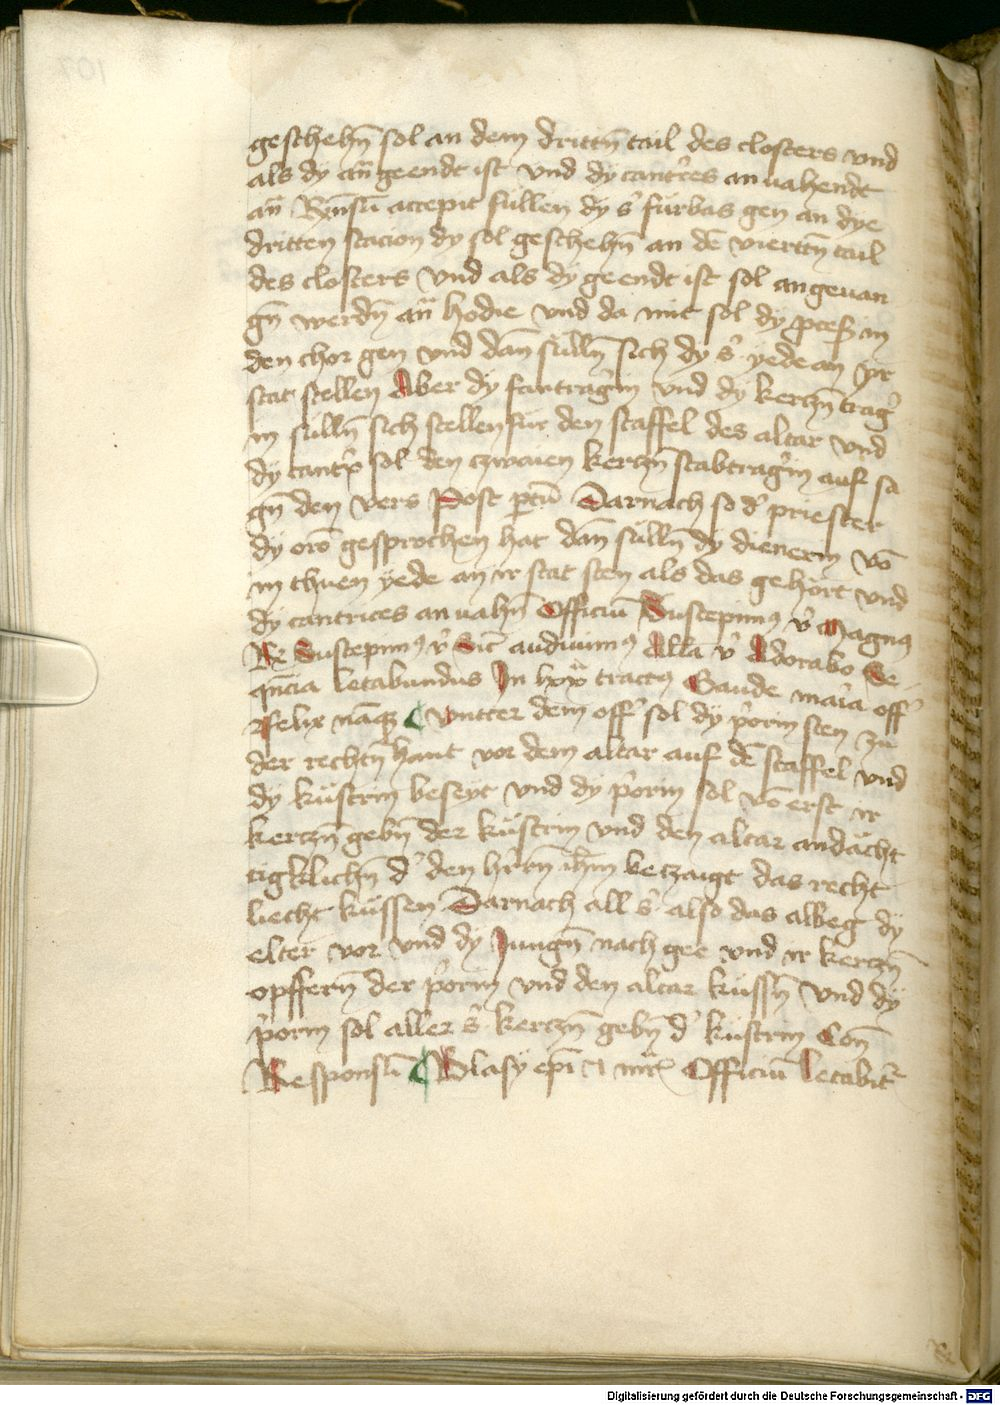 geschehn̄ sol an dem drittn̄ tail des closters vnd
als dy an̄ geendt ist vnd dy cantͬes an vahendt
an̄ Rn̄sū accepit sullen dy sͬ fürbas gen an dye
dritten stacion dy sol geschehn̄ an dē viertn̄ tail
des closters vnd als dy geendt ist sol angeuan
gn̄ werdn̄ an̄ hodie vnd da mit sol dy ꝓceß in
den chor gen vnd dan̄ sulln̄ sich dy sͬ yede an yr
stat stellen Aber dy fantragͬin vnd dy kerczn̄ tragͬ
in sulln̄ sich stellen für den staffel des altar vnd
dy cantͬx sol den czwaien kerczn̄ stabtragͬin auf sa
gn̄ den vers Post ptū Darnach so dͬ priester
dy orō gesprochen hat dan̄ sulln̄ dy dienerin vō
in thuen yede an ir stat sten als das gehört vnd
dy cantrices an vahn̄ Officiū Suscepimꝰ vͬ Magnꝰ
Gr̄ Suscepimꝰ vͬ Sic̄ audiuimꝰ Alla vͬ Adorabo Se
qn̄cia letabundus In lxxͣ tractꝰ Gaude maͬia offͬ
Felix nāqꝫ vntter dem offͬ sol dy pͬorin sten zu
der rechtn̄ hant vor dem altar auf dē staffel vnd
dy küstrin beseyt vnd dy pͬorin sol vō erst ir
kerczn̄ gebn̄ der küstrin vnd den altar andächt
tigklichn̄ dͬ den hͬrn̄ ihm̄ betzaigt das recht
liecht küssen Darnach all sͬ also das albeg dy
elter vor vnd dy Jungn̄ nach gee vnd ir kerczn̄
opffern̄ der pͬorin vnd den altar küssn̄ vnd dy
pͬorin sol aller sͬ kerczn̄ gebn̄ dͬ küstrin Con̄
Responsū Blasy epī ⁊ mr̄s Officiū letabitͬ
Digitalisierung gefördert durch die Deutsche Forschungsgemeinschaft - DFG